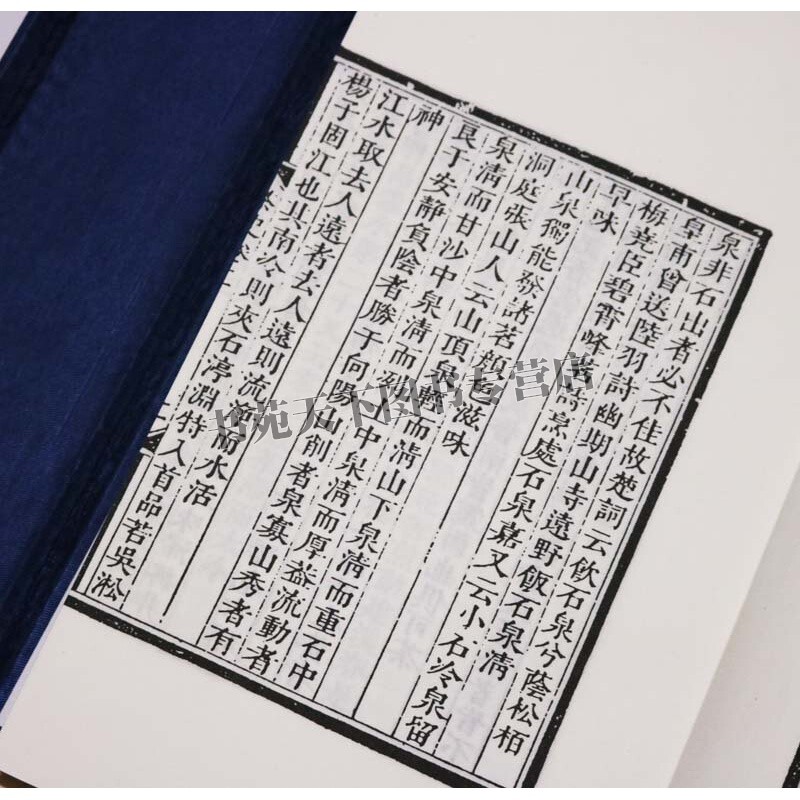 泉非石出者必不佳故楚詞云飲石泉兮蔭松栢
皇甫曾送陸羽詩幽期山寺遠野飯石泉清
梅堯臣碧霄峰茗詩烹處石泉嘉又云小石冷泉留
早味
山泉獨能發諸茗顏色滋味
洞庭張山人云山頂泉輕而清山下泉清而重石中
泉清而甘沙中泉清而冽土中泉清而厚益流動者
良于安靜負陰者勝于向陽山削者泉寡山秀者有
神
江水取去人遠者去人遠則流而水活
楊子固江也其南冷則夾石渟淵特入首品若吳淞
书苑天下图书专营店